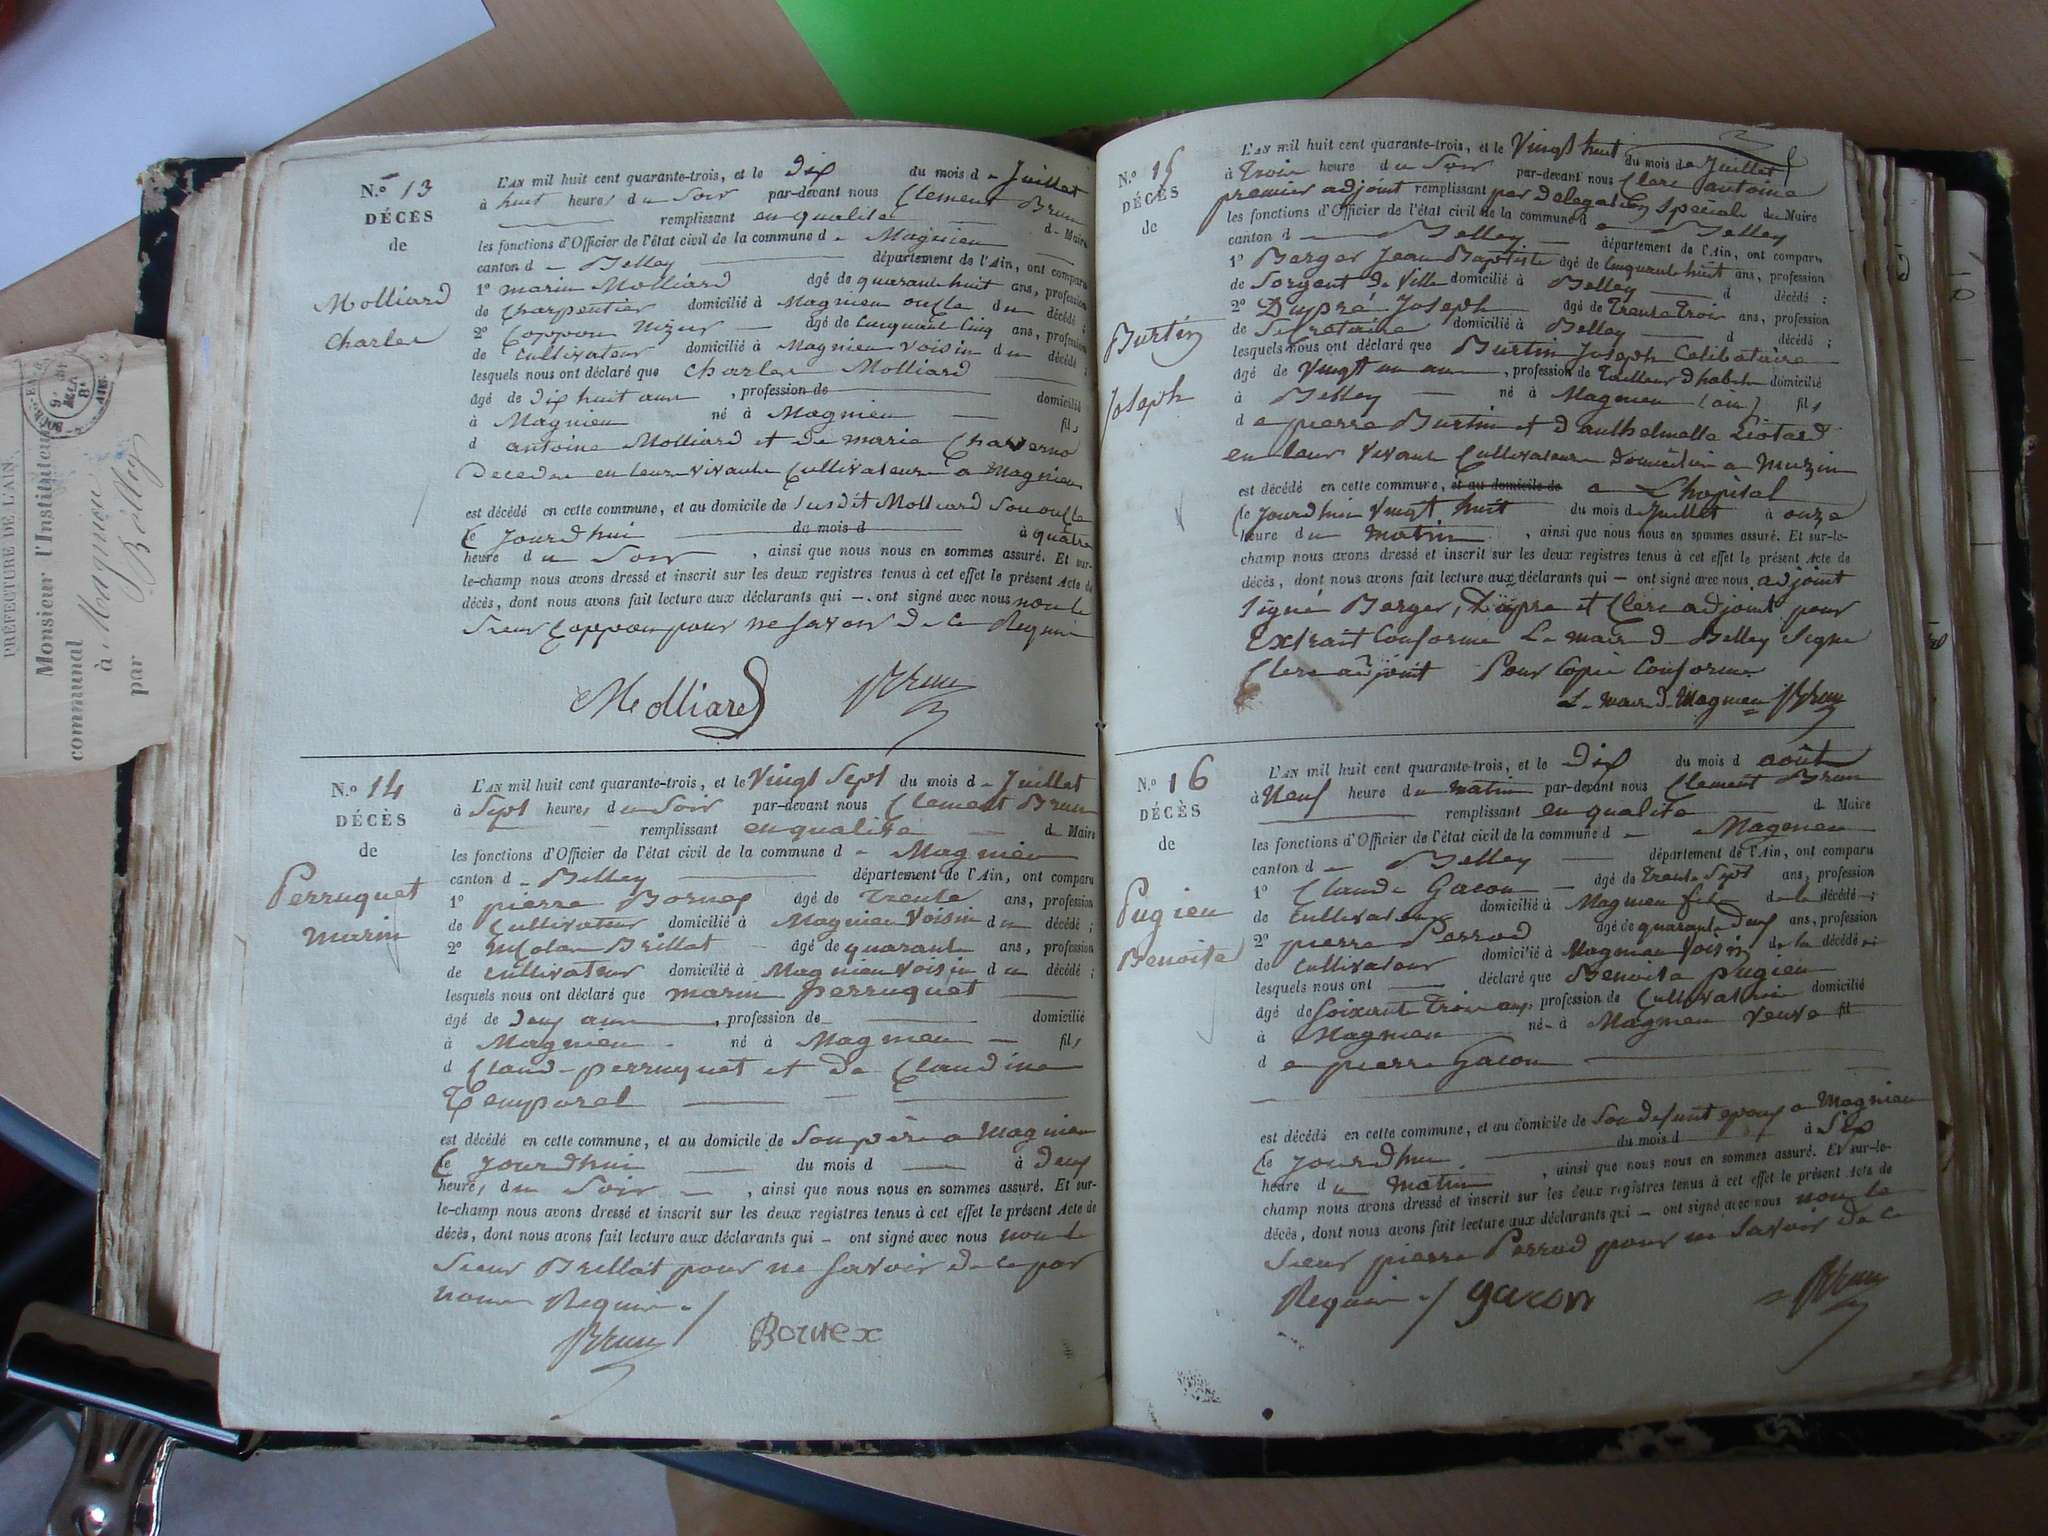 PRÉFECTURE DE L'AIN.
Monsieur l'Instituteur
communal
à Magnieu
par Belley
N.º 13
DÉCÈS
de
Molliard
Charles
L'AN mil huit cent quarante-trois, et le dix du mois de Juillet
à huit heures du Soir par-devant nous Clement Brun
remplissant en qualité de Maire
les fonctions d'Officier de l'état civil de la commune de Magnieu
canton de Belley département de l'Ain, ont comparu
1º marin Molliard âgé de quarante huit ans, profession
de Charpentier domicilié à Magnieu oncle du décédé ;
2º Coppon âgé de Cinquante Cinq ans, profession
de Cultivateur domicilié à Magnieu Voisin du décédé ;
lesquels nous ont déclaré que Charles Molliard
âgé de dix huit ans , profession de domicilié
à Magnieu né à Magnieu fils
d antoine Molliard et de marie Charverno
Decedes en leur vivant Cultivateurs a Magnieu
est décédé en cette commune, et au domicile de Susdit Molliard Son oncle
Ce Jourdhui du mois d à quatre
heure du Soir , ainsi que nous nous en sommes assuré. Et sur-
le-champ nous avons dressé et inscrit sur les deux registres tenus à cet effet le présent Acte de
décès, dont nous avons fait lecture aux déclarants qui — ont signé avec nous non le
Sieur Coppon pour ne Savoir de ce Requis
Molliard Brun
N.º 14
DÉCÈS
de
Perruquet
Marin
L'AN mil huit cent quarante-trois, et le Vingt Sept du mois de Juillet
à Sept heures du Soir par-devant nous Clement Brun
remplissant en qualité de Maire
les fonctions d'Officier de l'état civil de la commune de Magnieu
canton de Belley département de l'Ain, ont comparu
1º pierre Bornex âgé de Trente ans, profession
de Cultivateur domicilié à Magnieu Voisin du décédé ;
2º Brillat âgé de quarante ans, profession
de Cultivateur domicilié à Magnieu Voisin du décédé ;
lesquels nous ont déclaré que marin perruquet
âgé de deux ans , profession de domicilié
à Magnieu né à Magnieu fils
d Claude perruquet et de Claudine
Temporel
est décédé en cette commune, et au domicile de Son père a Magnieu
Ce Jourdhui du mois d à deux
heures du Soir , ainsi que nous nous en sommes assuré. Et sur-
le-champ nous avons dressé et inscrit sur les deux registres tenus à cet effet le présent Acte de
décès, dont nous avons fait lecture aux déclarants qui — ont signé avec nous non le
Sieur Brillat pour ne Savoir de ce par
nous Requis ./
Brun Bornex
N.º 15
DÉCÈS
de
Burtin
Joseph
L'AN mil huit cent quarante-trois, et le Vingt huit du mois de Juillet
à Trois heure du Soir par-devant nous Clerc antoine
premier adjoint remplissant par Delegation Spéciale du Maire
les fonctions d'Officier de l'état civil de la commune de Belley
canton d Belley département de l'Ain, ont comparu
1º Berger Jean Baptiste âgé de Cinquante huit ans, profession
de Sergent de Ville domicilié à Belley d décédé ;
2º Dupré Joseph âgé de Trente Trois ans, profession
de Secretaire domicilié à Belley d décédé ;
lesquels nous ont déclaré que Burtin Joseph Celibataire
âgé de Vingt un ans , profession de Tailleur d'habits domicilié
à Belley né à Magnieu (ain) fils
de pierre Burtin et d'anthelmette Liotard
en leur vivant Cultivateurs Domiciliés a Muzin
est décédé en cette commune, et au domicile de a L'hopital
Ce Jourdhui Vingt huit du mois de Juillet à onze
heure du matin , ainsi que nous nous en sommes assuré. Et sur-le-
champ nous avons dressé et inscrit sur les deux registres tenus à cet effet le présent Acte de
décès, dont nous avons fait lecture aux déclarants qui — ont signé avec nous adjoint
Signé Berger, Dupré et Clerc adjoint pour
Extrait Conforme Le maire de Belley Signé
Clerc adjoint Pour Copie Conforme
Le maire de Magnieu Brun
N.º 16
DÉCÈS
de
Pugieu
Benoite
L'AN mil huit cent quarante-trois, et le dix du mois d août
à Neuf heure du matin par-devant nous Clement Brun
remplissant en qualité de Maire
les fonctions d'Officier de l'état civil de la commune de Magnieu
canton de Belley département de l'Ain, ont comparu
1º Claude Gacon âgé de Trente Sept ans, profession
de Cultivateur domicilié à Magnieu fils de la décédé ;
2º pierre Perrod âgé de quarante deux ans, profession
de Cultivateur domicilié à Magnieu Voisin de la décédé
lesquels nous ont déclaré que Benoite pugieu
âgé de Soixante Trois ans, profession de Cultivatrice domicilié
à Magnieu né à Magnieu Veuve fil
de pierre Gacon
est décédé en cette commune, et au domicile de Son defunt epoux a Magnieu
Ce Jourdhui du mois d à Six
heure du matin , ainsi que nous nous en sommes assuré. Et sur-le-
champ nous avons dressé et inscrit sur les deux registres tenus à cet effet le présent Acte de
décès, dont nous avons fait lecture aux déclarants qui — ont signé avec nous non le
Sieur pierre Perrod pour ne Savoir de ce
Requis ./ gacon Brun